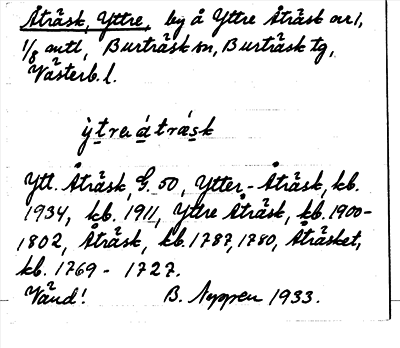 Åträsk, Yttre, by å Yttre Åträsk nr 1,
1/8 mtl, Burträsk sn, Burträsk tg,
Västerb. l.
ỳtreⱥátrásk
Ytt. Åträsk, G. 50, Ytter-Åträsk, kb.
1934, kb. 1911, Yttre Åträsk, kb. 1900-
1802, Åträsk, kb. 1787, 1780, Åträsket,
kb. 1769 - 1727.
Vänd! B. 1933.